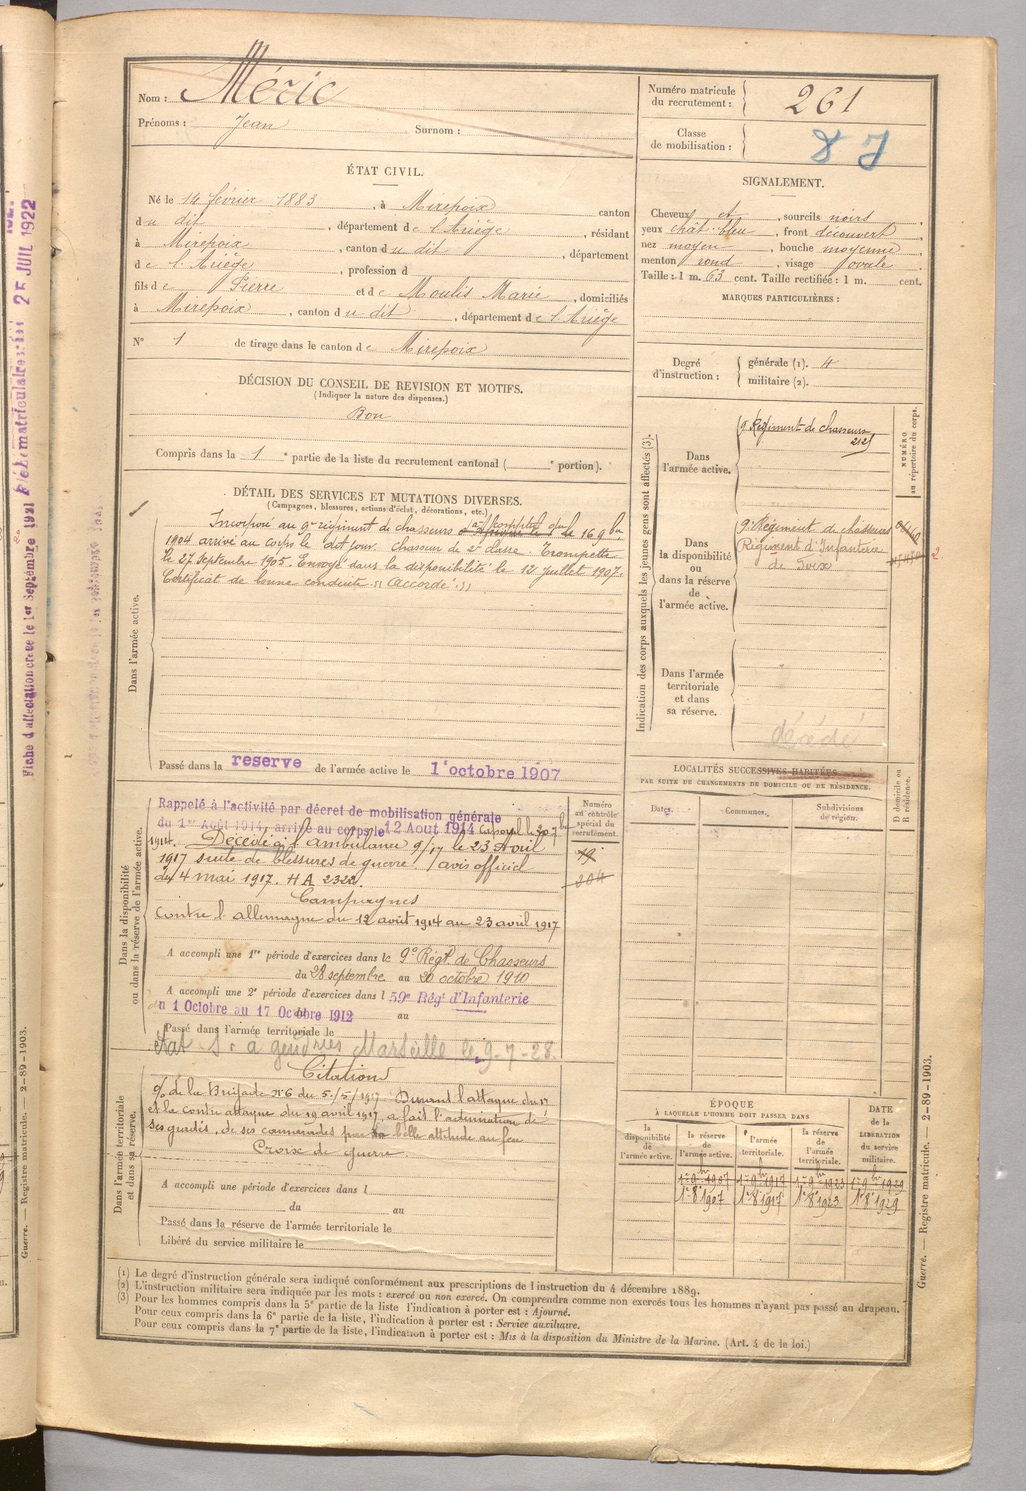 Nom : Méric
Prénoms : Jean Surnom :
Numéro matricule du recrutement : 261
Classe de mobilisation :
ÉTAT CIVIL.
Né le 14 février 1883, à Mirepoix canton
du dit, département de l'Ariège, résidant
à Mirepoix, canton du dit, département
de l'Ariège, profession d
fils de Pierre et de Moulis Marie, domiciliés
à Mirepoix, canton du dit, département de l'Ariège
N° 1 de tirage dans le canton de Mirepoix
DÉCISION DU CONSEIL DE REVISION ET MOTIFS.
(Indiquer la nature des dispenses.)
Bon
Compris dans la 1e partie de la liste du recrutement cantonal ( e portion).
SIGNALEMENT.
Cheveux et, sourcils noirs
yeux chât. bleu, front découvert
nez moyen, bouche moyenne
menton rond, visage ovale
Taille : 1 m. 63 cent. Taille rectifiée : 1 m. cent.
MARQUES PARTICULIÈRES :
Degré d'instruction : générale (1). 4
militaire (2).
DÉTAIL DES SERVICES ET MUTATIONS DIVERSES.
(Campagnes, blessures, actions d'éclat, décorations, etc.)
Dans l'armée active.
Incorporé au 9e régiment de chasseurs à compter du 16 9bre
1904 arrivé au corps le dit jour. Chasseur de 2e classe. Trompette
le 27 Septembre 1905. Envoyé dans la disponibilité le 12 Juillet 1907.
Certificat de bonne conduite "Accordé".
Passé dans la réserve de l'armée active le 1er octobre 1907
Indication des corps auxquels les jeunes gens sont affectés (3).
NUMÉRO au répertoire du corps.
Dans l'armée active.
9e Régiment de chasseurs
Dans la disponibilité ou dans la réserve de l'armée active.
9e Régiment de chasseurs
Régiment d'Infanterie
de Foix
Dans l'armée territoriale et dans sa réserve.
décédé
Dans la disponibilité ou dans la réserve de l'armée active.
Rappelé à l'activité par décret de mobilisation générale
du 1er Août 1914, arrivé au corps le 12 Aout 1914
1914. Décédé à l'ambulance 9/17 le 23 Avril
1917 suite de blessures de guerre (avis officiel
du 4 mai 1917. HA 2322.
Campagnes
Contre l'allemagne du 12 août 1914 au 23 avril 1917
A accompli une 1re période d'exercices dans le 9e Régt de Chasseurs
du 28 septembre au 20 octobre 1910
A accompli une 2e période d'exercices dans l 59e Régt d'Infanterie
du 1 Octobre au 17 Octobre 1912 au
Passé dans l'armée territoriale le
Marseille le 9-7-28.
Numéro au contrôle spécial du recrutement.
LOCALITÉS SUCCESSIVES HABITÉES
PAR SUITE DE CHANGEMENTS DE DOMICILE OU DE RÉSIDENCE.
Dates. Communes. Subdivisions de région. D domicile ou R résidence.
Dans l'armée territoriale et dans sa réserve.
Citation
O/ de la Brigade N° 6 du 5/5/1917. Durant l'attaque du 17
et la contre attaque du 19 avril 1917, a fait l'admiration de
ses gradés, de ses camarades par sa belle attitude au feu
Croix de guerre.
A accompli une période d'exercices dans l
du au
Passé dans la réserve de l'armée territoriale le
Libéré du service militaire le
ÉPOQUE
À LAQUELLE L'HOMME DOIT PASSER DANS
la disponibilité de l'armée active. la réserve de l'armée active. l'armée territoriale. la réserve de l'armée territoriale. DATE de la LIBÉRATION du service militaire.
1er 9bre 1907 1er 9bre 1917 1er 9bre 1923 1er 9bre 1929
1er 8bre 1907 1er 8bre 1917 1er 8bre 1923 1er 8bre 1929
(1) Le degré d'instruction générale sera indiqué conformément aux prescriptions de l'instruction du 4 décembre 1889.
(2) L'instruction militaire sera indiquée par les mots : exercé ou non exercé. On comprendra comme non exercés tous les hommes n'ayant pas passé au drapeau.
(3) Pour les hommes compris dans la 5e partie de la liste l'indication à porter est : Ajourné.
Pour ceux compris dans la 6e partie de la liste, l'indication à porter est : Service auxiliaire.
Pour ceux compris dans la 7e partie de la liste, l'indication à porter est : Mis à la disposition du Ministre de la Marine. (Art. 4 de la loi.)
Guerre. — Registre matricule. — 2-89-1903.
Guerre. — Registre matricule. — 2-89-1903.
25 JUIL 1922
Fiche d'affectation créée le 1er Septembre 1921